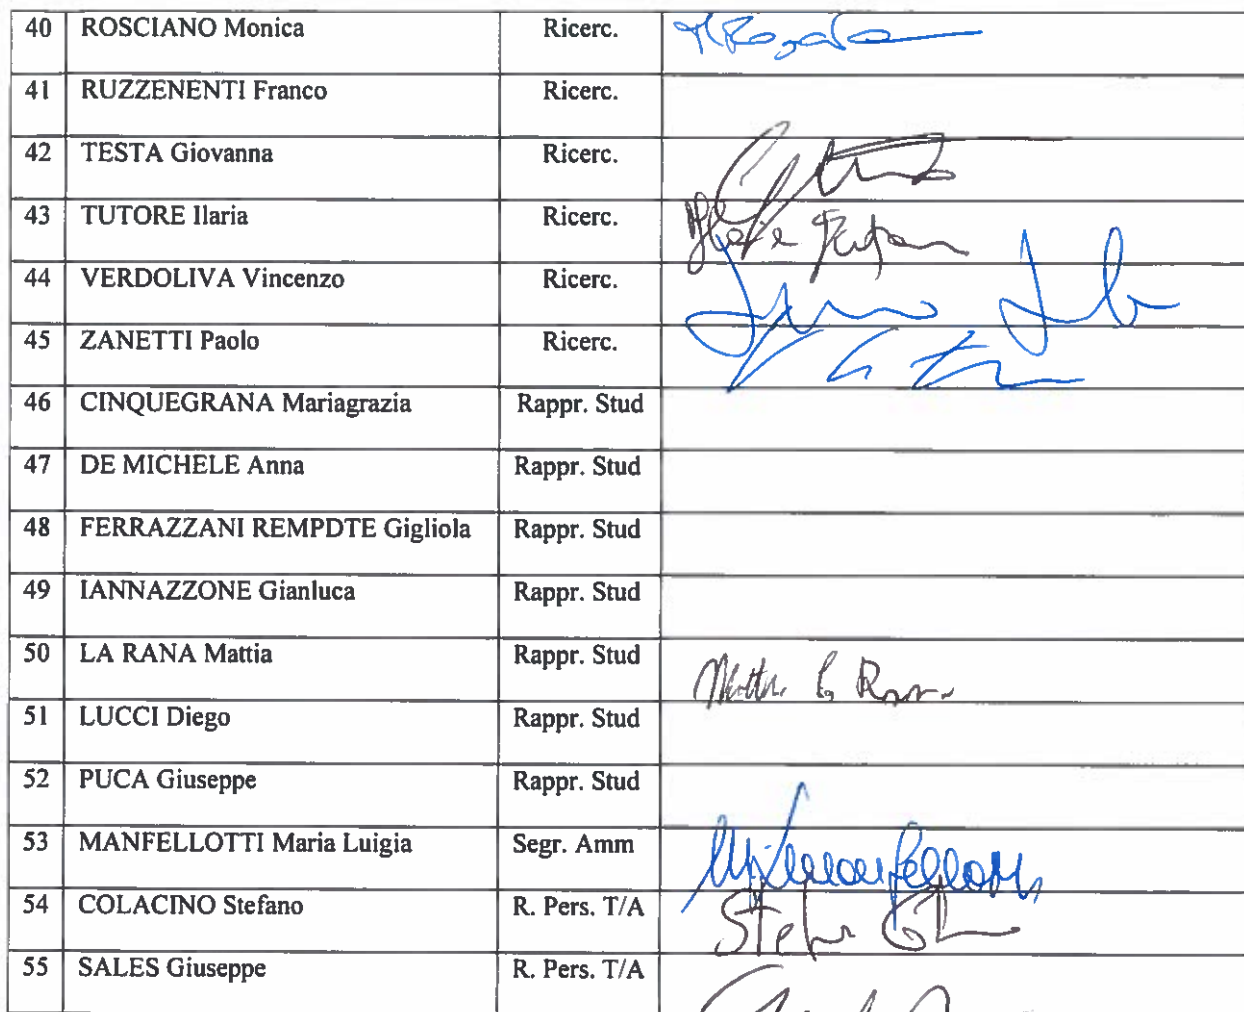 40 ROSCIANO Monica Ricerc.
41 RUZZENENTI Franco Ricerc.
42 TESTA Giovanna Ricerc.
43 TUTORE Ilaria Ricerc.
44 VERDOLIVA Vincenzo Ricerc.
45 ZANETTI Paolo Ricerc.
46 CINQUEGRANA Mariagrazia Rappr. Stud
47 DE MICHELE Anna Rappr. Stud
48 FERRAZZANI REMPDTE Gigliola Rappr. Stud
49 IANNAZZONE Gianluca Rappr. Stud
50 LA RANA Mattia Rappr. Stud
51 LUCCI Diego Rappr. Stud
52 PUCA Giuseppe Rappr. Stud
53 MANFELLOTTI Maria Luigia Segr. Amm
54 COLACINO Stefano R. Pers. T/A
55 SALES Giuseppe R. Pers. T/A